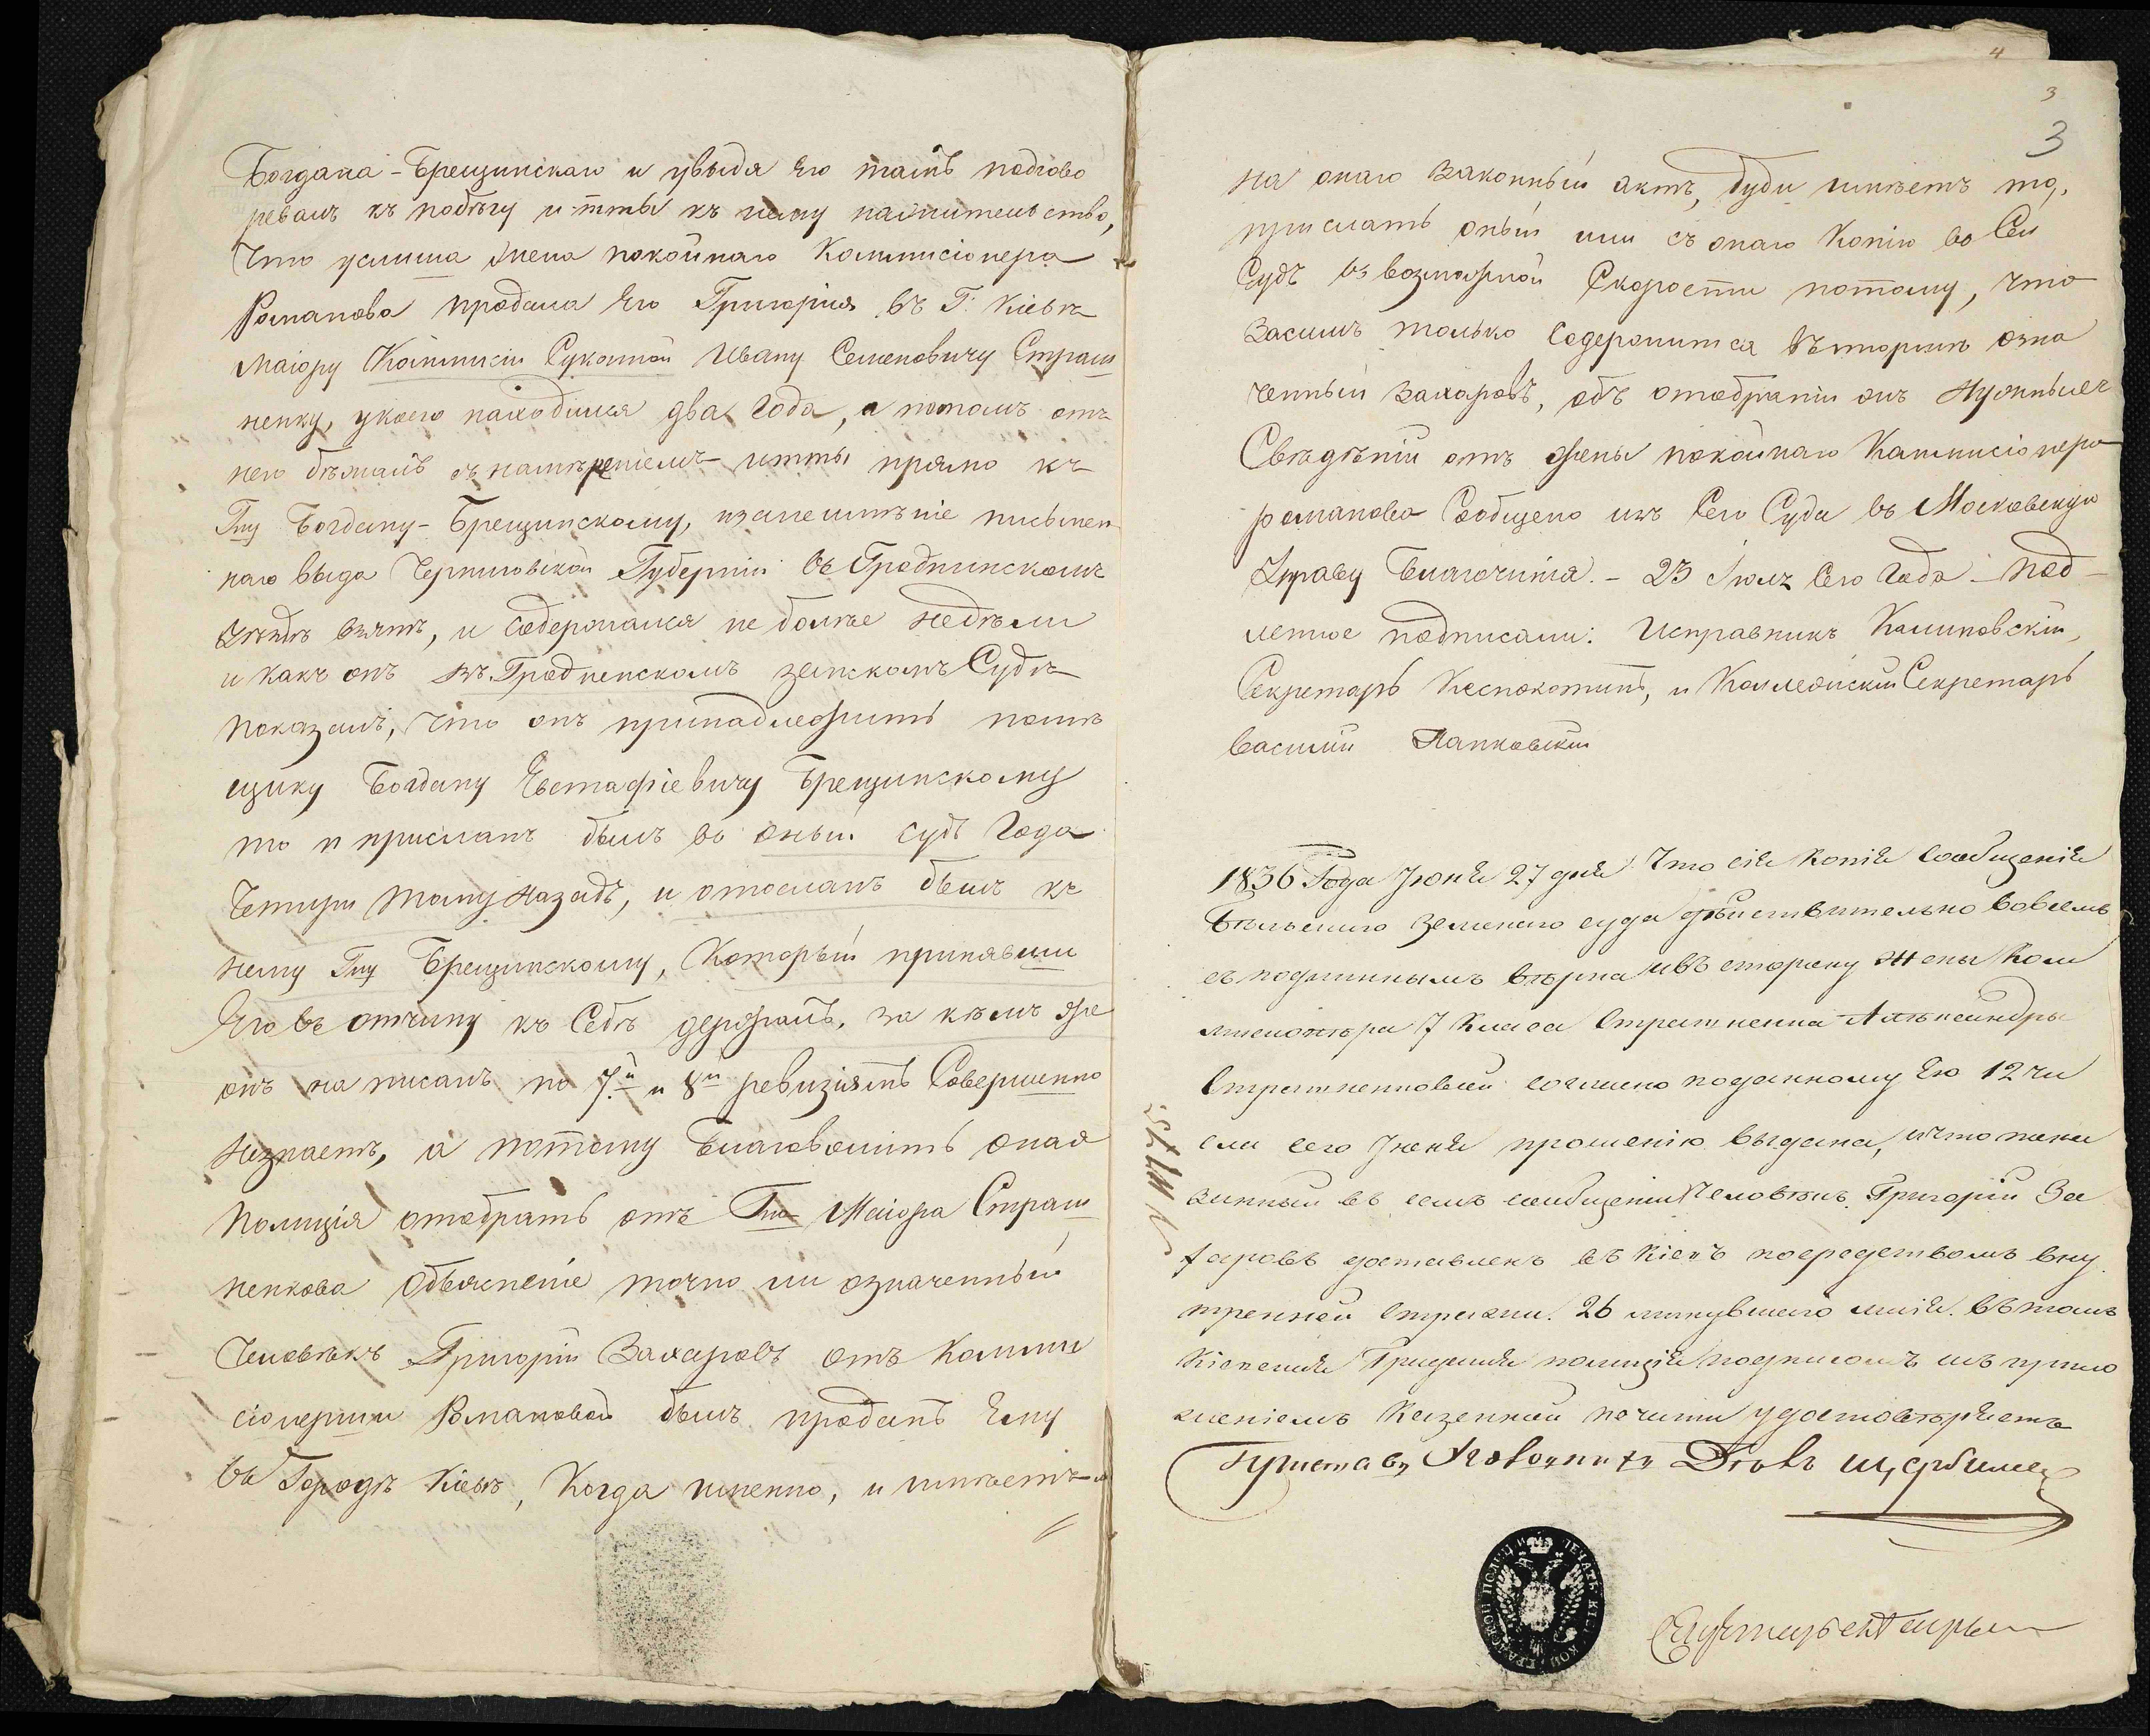 Богдана-Брещинскаго и увидя Его тамъ подгово
ревалъ къ побѣгу итты къ нему намѣстительство,
Что услиша жена покойнаго Коммисіонера
Романова продала Его Григорія въ Г: Кіевѣ
Маіору Коммисіи Сукнной Ивану Семеновичу Страш
ненку, укоего находился два года, а потомъ отъ
него бѣжалъ съ намѣреніемъ итты прямо къ
Гну Богдану-Брещинскому, изанеимѣніе письмен
наго выда Черниговской Губерніи въ Гродницскомъ
Уѣздѣ взятъ, и содержался не болѣе недѣли
и какъ онъ въ Гродненскомъ земскомъ Судѣ
показалъ, что онъ принадлежитъ помѣ
щику Богдану Евстафіевичу Брещинскому
то и присланъ былъ во оный судъ года
Четири тому назадъ, и отосланъ былъ къ
нему Гну Брещинскому, который принявши
Его въ отчину къ Себѣ держалъ, за кѣмъ же
онъ на писанъ по 7й и 8й ревизіямъ Совершенно
незнаетъ, а потому Благоволитъ оная
полиція отобрать отъ Гна Маіора Страш
ненкова Объясненіе точно ли означенный
Человѣкъ Григорій Захаровъ отъ Комми
сіонерши Романовой былъ проданъ Ему
въ Городѣ Кіевѣ, Когда именно, и имѣетъ ли
4
3
3
на онаго Законный актъ, буди имѣетъ то,
прислать оный или съ онаго Копію во Сей
Судъ въ возможной Скорости потому, что
засимъ только Содержится въ тюрмѣ озна
ченный Захаровъ, объ отобраніи онъ Нужныхъ
Свѣдѣній отъ жены покойнаго Коммисіонера
романова Сообщено изъ Сего Суда въ Московскую
Управу Благочинія. - 23 Іюля Сего Года - под-
линное подписали: Исправникъ Калиновскій,
Секретарь, и Коллежскій Секретарь
Василій Папковскій
1836 Года Іюня 27 дня Что сія копія сообщенія
Бѣльскаго Земскаго суда дѣйствительно вовсемъ
съ подлиннымъ вѣрна ивъ сторону Жены Ком
мисіонѣра 7 Класа Страшненка Алѣксандры
Страшненковой согласно поданному Ею 12 чи
сла сего Іюня прошенію выдана, ичто пока
занный въ семъ сообщеніи Человѣкъ Григорій За
харовъ доставленъ въ Кіевъ посредствомъ вну
тренней Стражи. 26 минувшаго Маія. въ томъ
Кіевская Градская полиція подписомъ изъ прило
женіемъ Казенной печати удостовѣряетъ
N 11475
ПЕЧАТЬ КІЕВСКОЙ ГРАДСКОЙ ПОЛИЦІИ